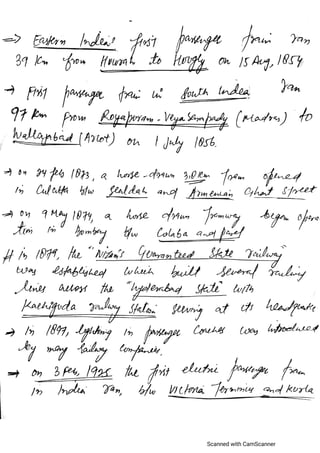 ⇒ Eastern India's first passenger train ran
39 Km from Howrah to Hougly on 15 Aug, 1854
→ First passenger train in South India ran
97 Km from Royapuram - Veyasampady (Madras) to
Wallajabad (Arcot) on 1 July 1856.
→ on 24 feb 1873, a horse-drawn 3.8 Km Tram opened
in Calcutta b/w Sealdah and Armenian Ghat Street
→ on 9 May 1874, a horse drawn Tramway began opera
tion in Bombay b/w Colaba and Parel
# in 1879, the "Nizam's Guaranteed State railway"
was established which built several railway
lines across the "hyderabad State" with
Kachiguda railway Station serving at its headquater
→ In 1897, lightning in passenger Coaches was introduced
by many railway Companies.
→ on 3 Feb, 1925 the first electric passenger train
in India ran, b/w Victoria Terminus and Kurla
Scanned with CamScanner